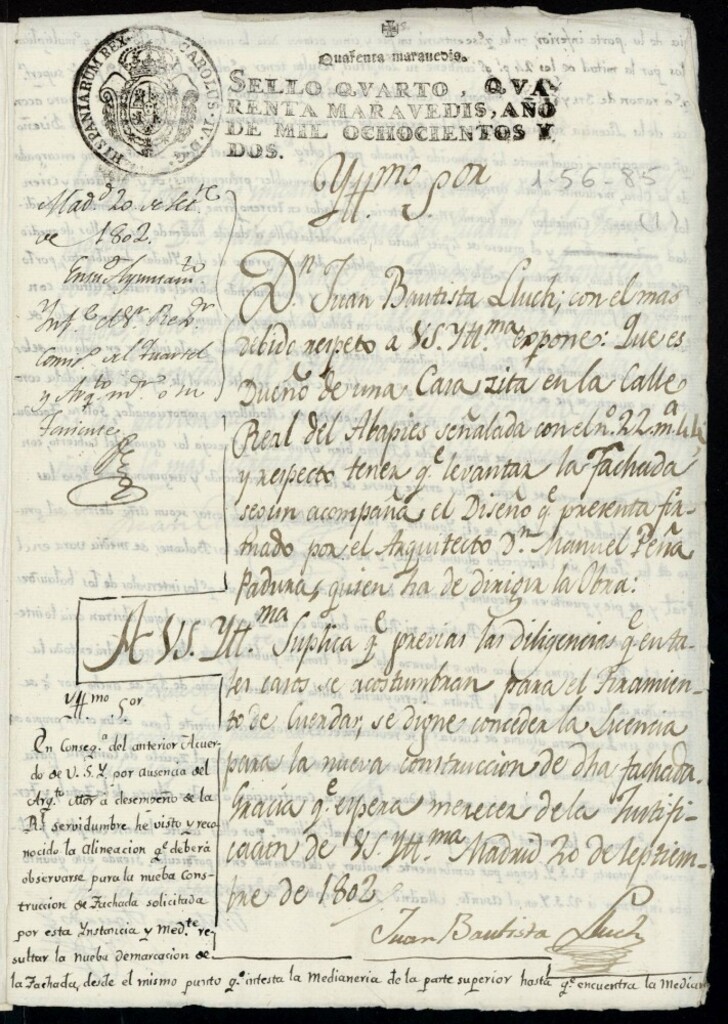 Quarenta maravedis.
SELLO QVARTO, QVA-
RENTA MARAVEDIS, AÑO
DE MIL OCHOCIENTOS Y
DOS.
CAROLUS IV D.G. HISPANIARUM REX
Yll.mo Sor
1-56-85
(1)
Mad.d 20 de
de 1802.
Ayuntam.to
Ynf.e el Sr. Reg.or
Comis.o del Quartel
y Arq.to m.or o su
Teniente
D.n Juan Bautista Lluch; con el mas
debido respeto a VS. Yll.ma expone: Que es
Dueño de una Casa zita en la Calle
Real del Abapies señalada con el n.o 22. m.a 44
y respecto tener q.e levantar la Fachada
segun acompaña el Diseño q.e presenta fir-
mado por el Arquitecto D.n Manuel Peña
Paduras, quien ha de dirigir la Obra:
A VS. Yll.ma Suplica q.e previas las diligencias q.e en ta-
les casos se acostumbran para el Tiramien-
to de Cuerdas, se digne conceder la Licencia
para la nueva construccion de dha fachada.
Gracia q.e espera merecer de la Justifi-
cacion de VS. Yll.ma Madrid 20 de Septiem-
bre de 1802.
Juan Bautista Lluch
Yll.mo Sor
En Conseq.a del anterior Acuer
do de V.S.Y. por ausencia del
Arq.to Mor a desempeño de la
R.l servidumbre he visto y reco
nocido la Alineacion q.e deberá
observarse para la nueba Cons-
truccion de Fachada solicitada
por esta Ynstancia y Med.te re
sultar la nueba demarcacion de
la Fachada, desde el mismo punto q.e intesta la Medianeria de la parte superior hasta q.e encuentra la Median